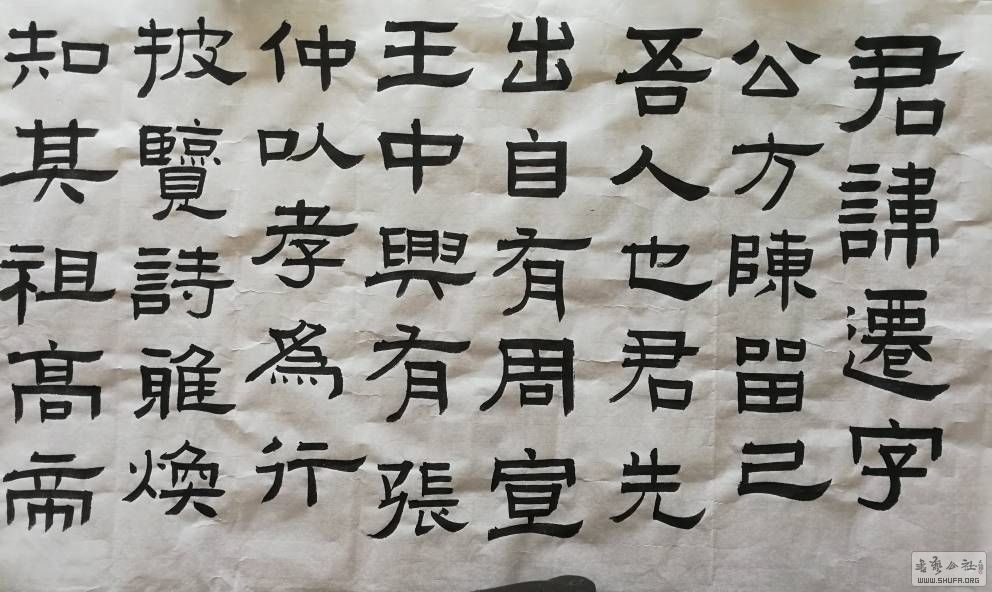 君諱遷字
公方陳留己
吾人也君先
出自有周宣
王中興有張
仲以孝爲行
披覽詩雅煥
知其祖高帝
书艺公社
WWW.SHUFA.ORG